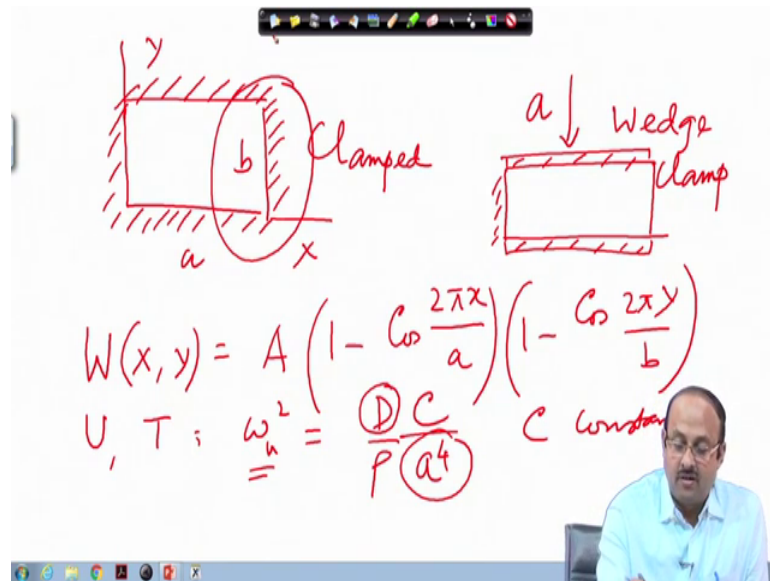 y
b
Clamped
a
x
a
Wedge
Clamp
W(x, y) = A (1 - Cos 2πx/a) (1 - Cos 2πy/b)
U, T : ω_n² = D C / ρ a⁴
C